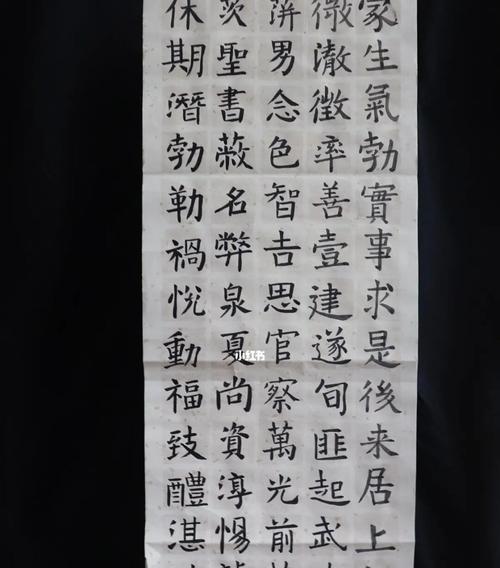 家生氣勃實事求是後来居上
澈徵率善壹建遂旬匪起武
男念色智吉思官察萬光前
茨聖書蔽名弊泉夏尚資淳惕
休期潛勃勒禍悅動福致醴湛
小红书